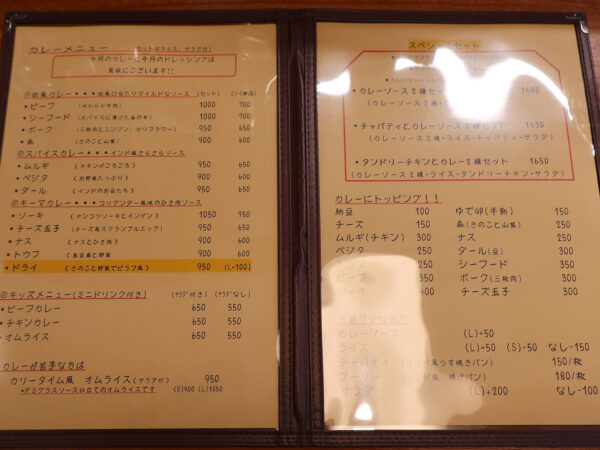 カレーメニュー (セットはライス、サラダ付)
今月のカレーと今月のドレッシングは
裏板にございます!!
◎欧風カレー・・・欧風口当たりでマイルドなソース (セット) (ソース単品)
・ビーフ (やわらか牛肉) 1000 700
・シーフード (スパイスに漬けた海の幸) 1000 700
・ポーク (三枚肉とニンジン、カリフラワー) 950 650
・森 (きのこと山菜) 900 600
◎スパイスカレー・・・インド風さらさらソース
・ムルギ (チキンがごろごろ) 950 650
・ベジタ (お野菜たっぷり) 900 600
・ダール (インドのお豆たち) 950 650
◎キーマカレー・・・コリアンダー風味のひき肉ソース
・ソーキ (ナンコツソーキとインゲン) 1050 750
・チーズ玉子 (チーズ&スクランブルエッグ) 950 650
・ナス (ナスとひき肉) 900 600
・トウフ (島豆腐と野菜) 900 600
・ドライ (きのこと野菜でピラフ風) 950 (L-100)
◎キッズメニュー(ミニドリンク付き) (サラダ付き) (サラダなし)
・ビーフカレー 650 550
・チキンカレー 650 550
・オムライス 650 550
カレーが苦手な方は
カリータイム風 オムライス(サラダ付) 950
・デミグラスソース仕立てのオムライスです (S)900 (L)1050
スペシャルセット
・カレーソース2種セット 1400
(カレーソース2種・
・チャパティとカレーソース2種セット 1530
(カレーソース2種・ライス・チャパティ・サラダ)
・タンドリーチキンとカレー2種セット 1650
(カレーソース2種・ライス・タンドリーチキン・サラダ)
カレーにトッピング!!
納豆 100 ゆで卵(半熟) 150
チーズ 150 森(きのこと山菜) 350
ムルギ(チキン) 300 ナス 250
ベジタ 250 ダール(豆) 300
250 シーフード 350
ビーフ 350 ポーク(三枚肉) 300
ソーキ 400 チーズ玉子 300
カレーソース (L)+50
ライス (L)+50 (S)-50 なし-150
チャパティ (インド風うす焼きパン) 150/枚
(インド風 揚げパン) 180/枚
サラダ (L)+200 なし-100